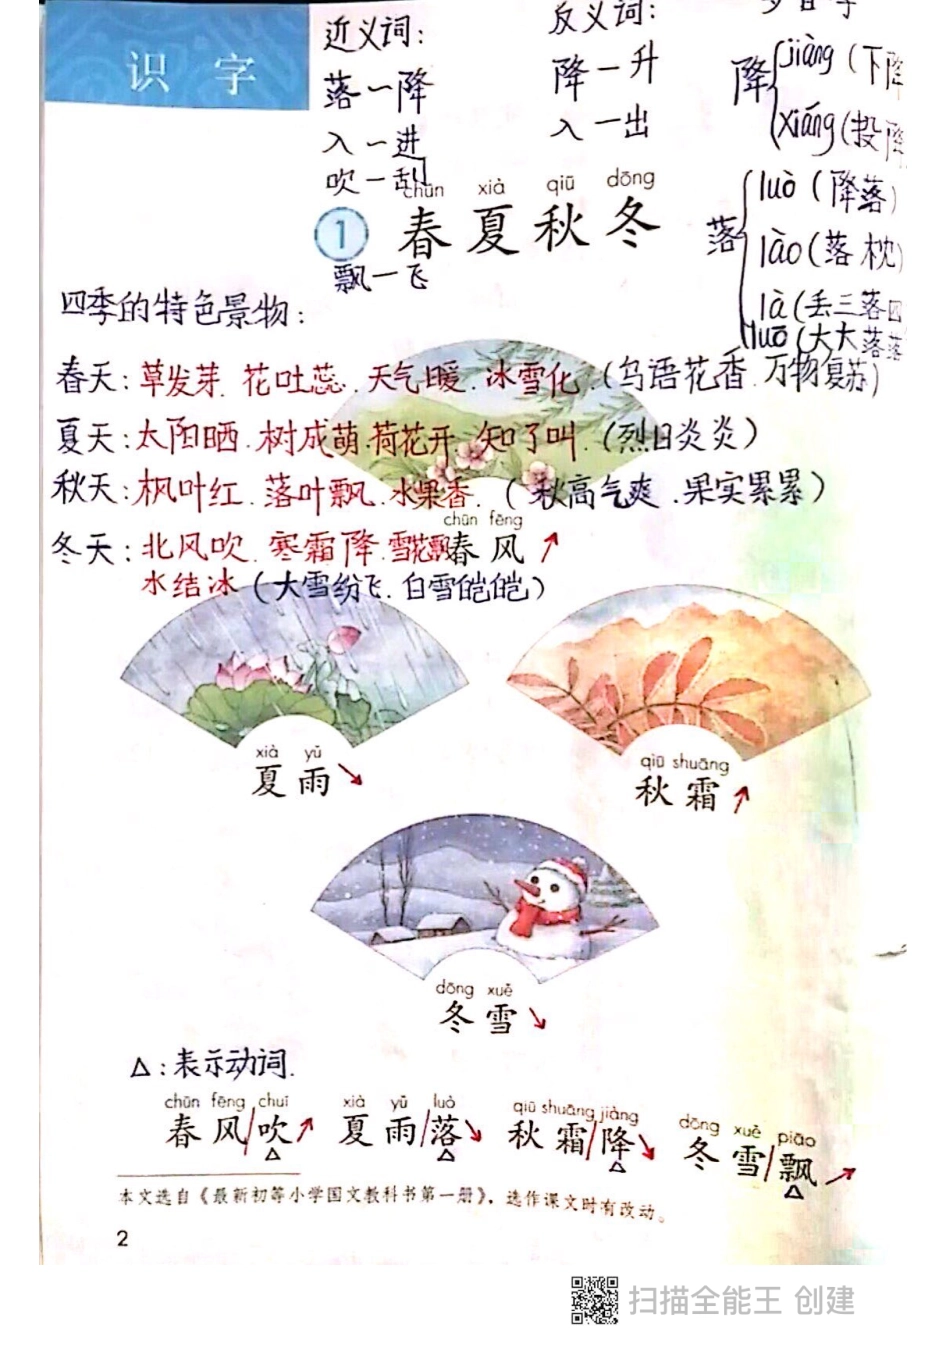 识字
近义词:
反义词:
落－降
降－升
降
jiàng(下降
入－进
入－出
xiáng(投降
吹－刮
chūn xià qiū dōng
1 春夏秋冬
落
luò(降落)
lào(落枕)
là(丢三落四
luō(大大落落
飘－飞
四季的特色景物:
春天:草发芽.花吐蕊.天气暖.冰雪化.(鸟语花香.万物复苏)
夏天:太阳晒.树成萌.荷花开.知了叫.(烈日炎炎)
秋天:枫叶红.落叶飘.水果香.(秋高气爽.果实累累)
chūn fēng
冬天:北风吹.寒霜降.雪花飘
春风↗
水结冰(大雪纷飞.白雪皑皑)
xià yǔ
夏雨↘
qiū shuāng
秋霜↗
dōng xuě
冬雪↘
△:表示动词.
chūn fēng chuī xià yǔ luò qiū shuāng jiàng dōng xuě piāo
春风/吹↗ 夏雨/落↘ 秋霜/降↘ 冬雪/飘→
本文选自《最新初等小学国文教科书第一册》，选作课文时有改动。
2
扫描全能王 创建